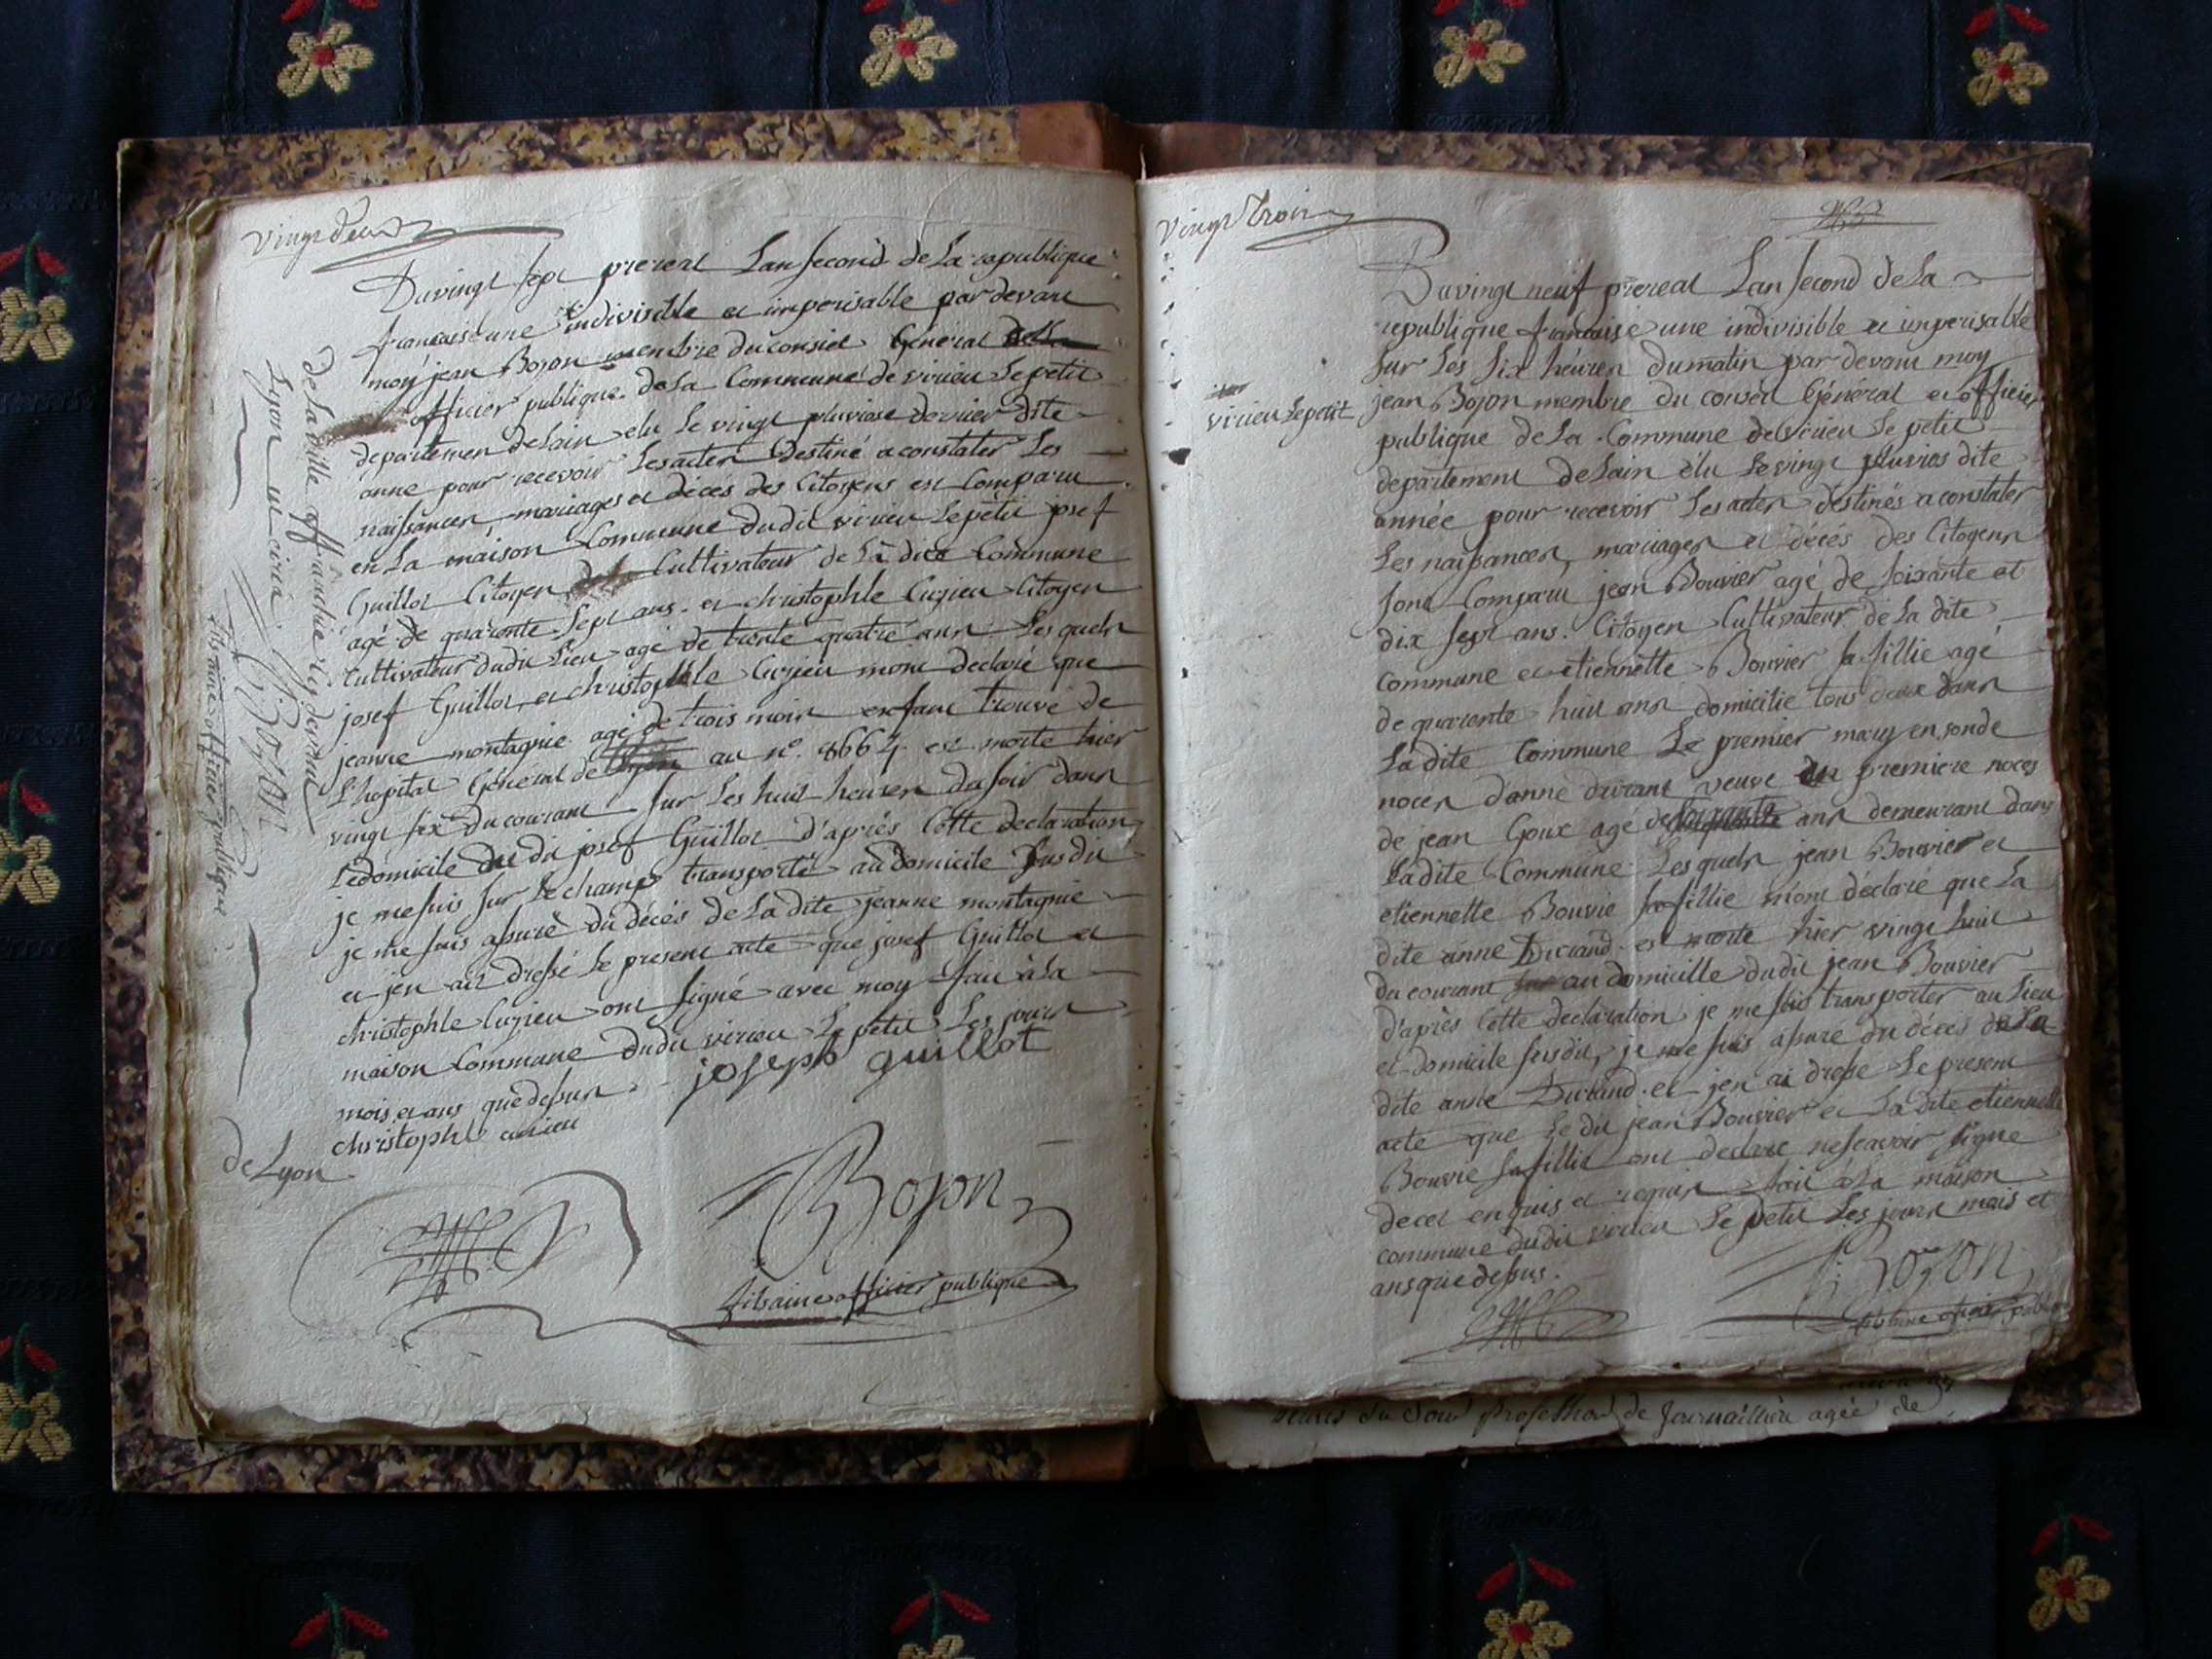 vingt deux
Du vingt sept prereal Lan second de La republique
francaise une indivisible et imperisable par devant
moy jean Bojon membre du consiel Général
officier publique de La Commune de virieu Le petit
departemen de Lain elu Le vingt pluviose dernier dite
anne pour recevoir Les acter destiné a constater Les
naissancer mariages et déces des Citoyens est Comparu
en La maison Commune dudit virieu Le petit josef
Guillot Citoyen Cultivateur de La dite Commune
agé de quarente sept ans et christophle Cuzieu Citoyen
Cultivateur dudit Lieu agé de trente quatre anr Les quelr
josef Guillot et christophle Cuzieu mont declaré que
jeanne montagnie agé de trois moir enfant trouvé de
L'hopital Général de au n° 8664 est morte hier
vingt six du courant sur Les huit heurer du soir danr
Le domicile du dit josef Guillot d'après Cette declaration
je me suis sur Le champ transporté au domicile susdit
je me suis assuré du décés de La dite jeanne montagnie
et jen ait dressé Le present acte que josef Guillot et
christophle Cuzieu ont signé avec moy fait a La
maison Commune dudit virieu Le petit Les jourr
mois et ans que dessur joseph guillot
christophle cuzieu
de Lyon
Bojon
fils aine officier publique
de La ville affranchie cy devant
Lyon
Bojon
fils aine officier publique
vingt troir
virieu Le petit
Du vingt neuf prereal Lan second de La
republique francaise une indivisible et imperisable
sur Les six heurer du matin par devant moy
jean Bojon membre du conseil Général et officier
publique de La Commune de virieu Le petit
departement de Lain élu Le vingt pluvios dite
année pour recevoir Les acter destinés a constater
Les naissancer, mariager et décés des Citoyenr
sont Comparu jean Bouvier agé de soixante et
dix sept ans Citoyen Cultivateur de La dite
commune et etiennette Bouvier sa fillie agé
de quarente huit anr domicilie tous deux danr
La dite Commune Le premier mary en sonde
nocer danne durant veuve en premiere noces
de jean Goux age de anr demeurant dans
La dite Commune Les quelr jean Bouvier et
etiennette Bouvie sa fillie mont déclaré que La
dite anne Durand est morte hier vingt huit
du courant au domicille dudit jean Bouvier
d'après Cette declaration je me suis transporter au Lieu
et domicile susdit, je me suis assure du déces de La
dite anne Durand et jen ai dresse Le present
acte que Le dit jean Bouvier et La dite etiennette
Bouvie sa fillie ont declare ne scavoir signe
de cet enquis et requir fait a La maison
commune dudit virieu Le petit Les jourr mois et
ans que dessus.
Bojon
fils aine officier publique
de journailliere agée de